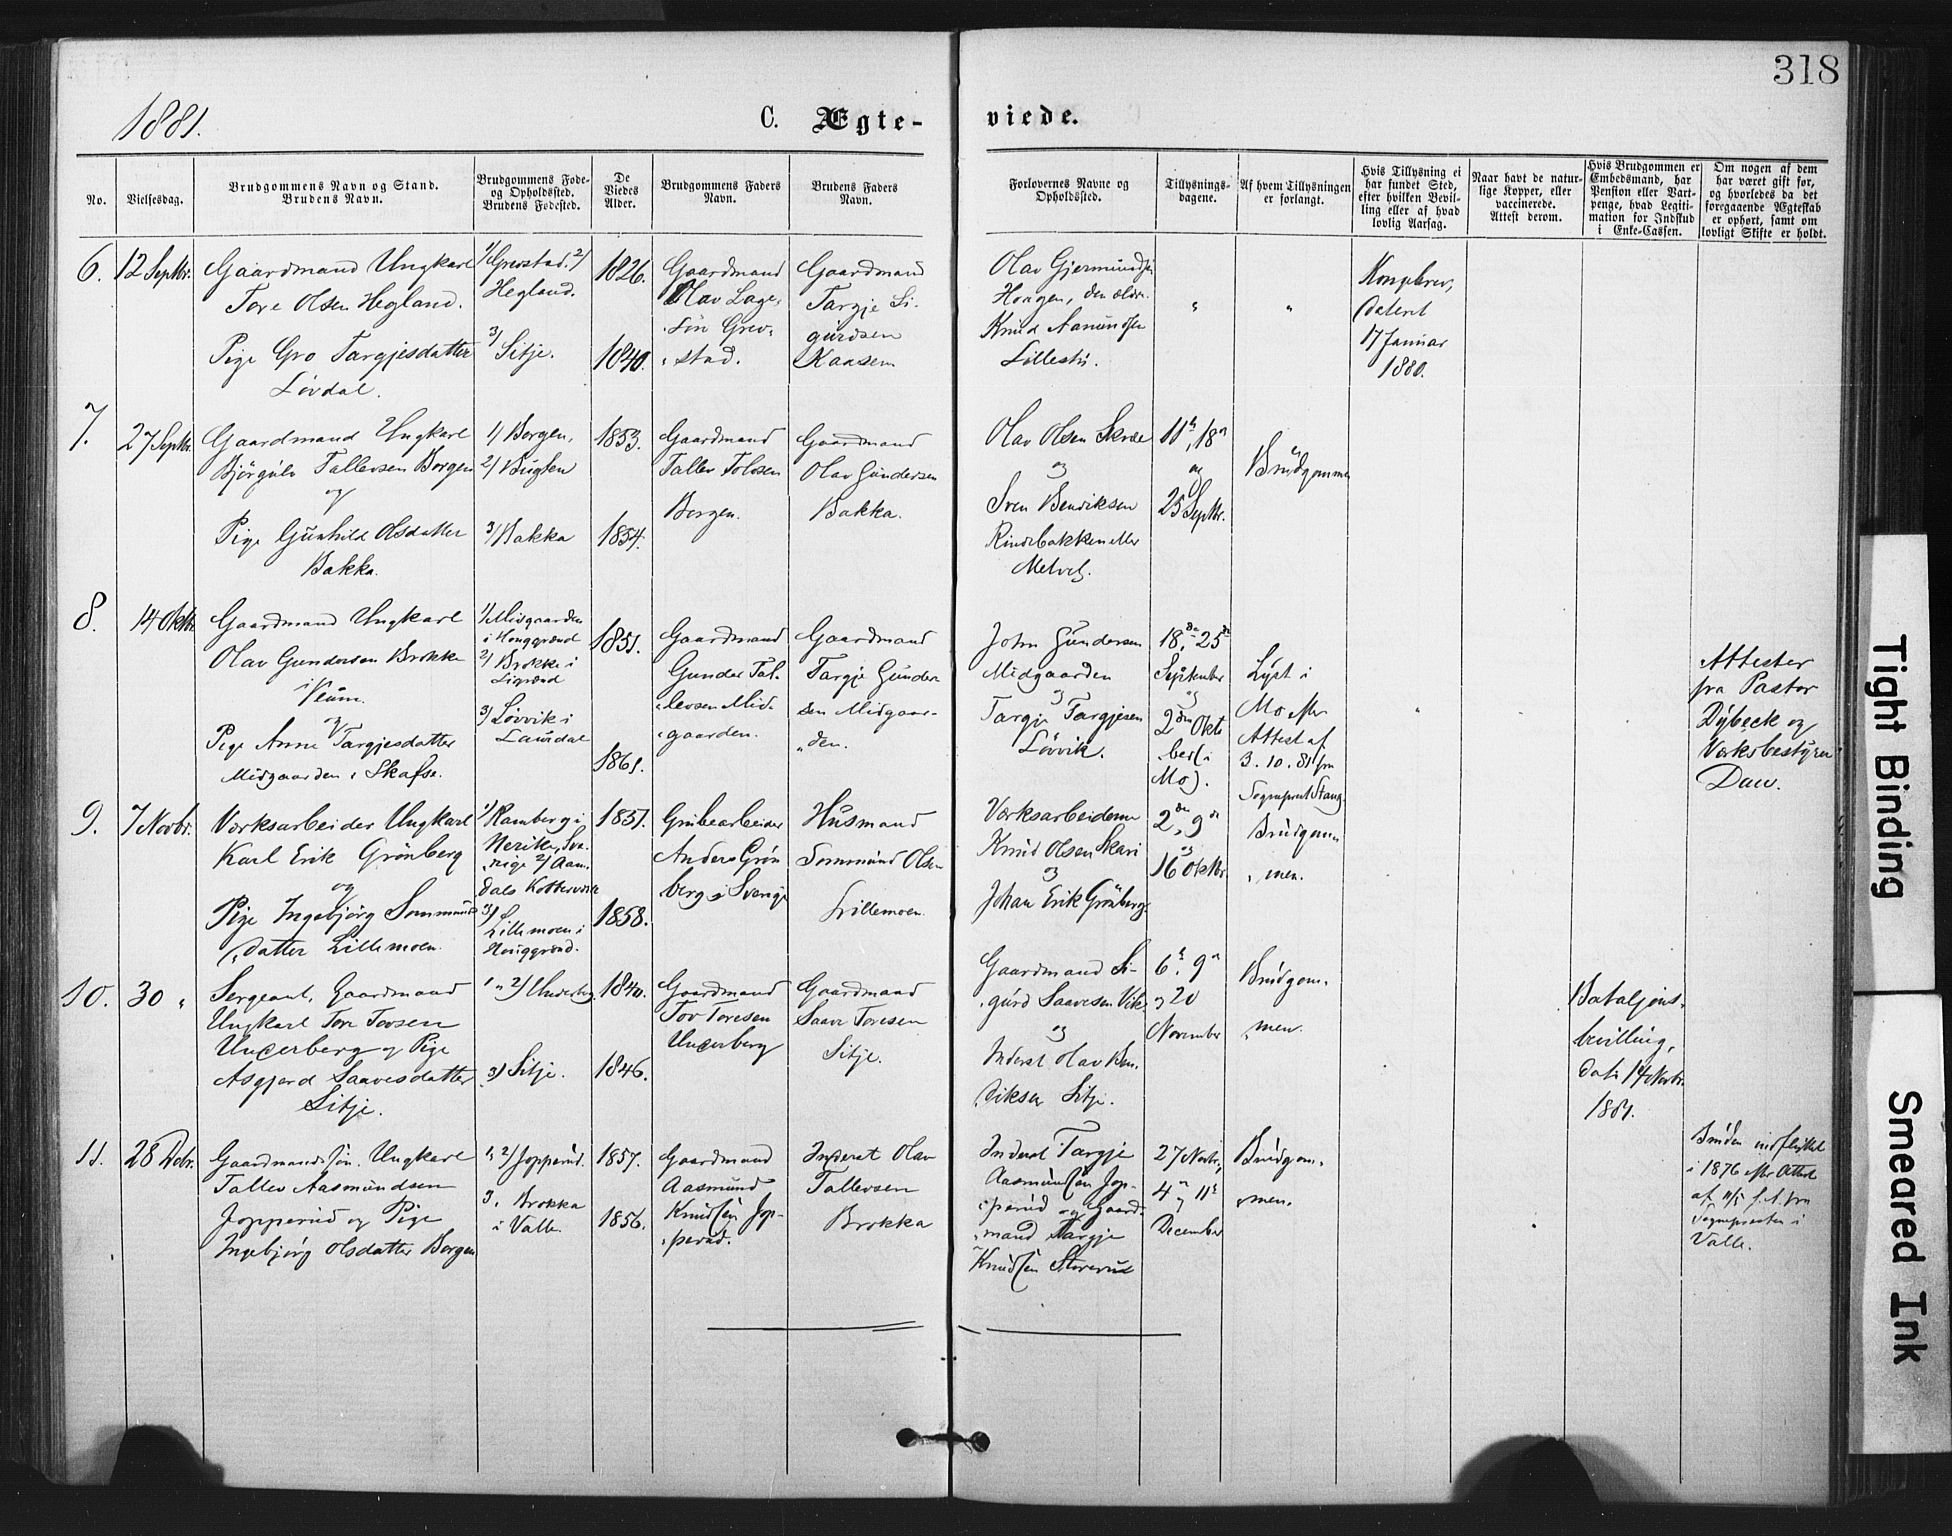 318
1881.
C. Ægte-
viede.
No.
Vielsesdag.
Brudgommens Navn og Stand.
Brudens Navn.
Brudgommens Føde-
og Opholdssted.
Brudens Fødested.
De
Viedes
Alder.
Brudgommens Faders
Navn.
Brudens Faders
Navn.
Forlovernes Navne og
Opholdssted.
Tillysnings-
dagene.
Af hvem Tillysningen
er forlangt.
Hvis Tillysning ei
har fundet Sted,
efter hvilken Bevil-
ling eller af hvad
lovlig Aarsag.
Naar havt de natur-
lige Kopper, eller
vaccinerede.
Attest derom.
Hvis Brudgommen er
Embedsmand, har
Pension eller Vart-
penge, hvad Legiti-
mation for Indskud
i Enke-Cassen.
Om nogen af dem
har været gift før,
og hvorledes da det
foregaaende Ægteskab
er ophørt, samt om
lovligt Skifte er holdt.
6.
12 Septbr.
Gaardmand Ungkarl
Tore Olsen Hegland.
Pige Gro Targjesdatter
Løvdal.
1/ Grevstad. 2/
Hegland.
3/ Sitje.
1826.
1840.
Gaardmand
Olav Lage-
søn Grev-
stad.
Gaardmand
Targje Si-
gurdsen
Kaasen
Olav Gjermundsen
Haugen, den ældre.
Knud Aamundsen
Lillesti.
"
"
Kongebrev,
dateret
17 Januar
1880.
7.
27 Septbr.
Gaardmand Ungkarl
Bjørgulv Tallevsen Borgen
og
Pige Gunhild Olsdatter
Bakka.
1/ Borgen,
2/
3/ Bakka
1853.
1854.
Gaardmand
Tallev Tolvsen
Borgen.
Gaardmand
Olav Gundersen
Bakka.
Olav Olsen Skrée
og
Sven Bendiksen
Rindebakken eller
11te, 18de
og
25 Septbr.
Brudgommen
8.
14 Oktbr.
Gaardmand Ungkarl
Olav Gundersen Brokke
i Veum.
og
Pige Anne Targjesdatter
Midgaarden i Skafse.
1/ Midgaarden
i Houggrænd
2/ Brokke i
3/ Løvvik i
Laurdal
1851.
1861.
Gaardmand
Gunder Tal-
levsen Mid-
gaarden.
Gaardmand
Targje Gunder
sen Midgaar-
den.
John Gundersen
Midgaarden
og
Targje Targjesen
Løvvik.
18de, 25de
September
og
2den Okto
ber (i
Mo).
Lyst i
Mo efter
Attest af
3. 10. 81 fra
Sogneprest Stang.
Attester
fra Pastor
Dybeck og
Værksbestyrer
Daw.
9.
7 Novbr.
Værksarbeider Ungkarl
Karl Erik Grönberg
og
Pige Ingebjørg Sommunds
datter Lillemoen.
1/ Ramberg i
Nerike, Sve-
rige 2/ Aam-
dals Kobberværk
3/
Lillemoen i
Houggrænd.
1851.
1858.
Grubearbeider
Anders Grön
berg i Sverige
Husmand
Sommund Olsen
Lillemoen.
Værksarbeiderne
Knud Olsen Skari
og
Johan Erik Grönberg
2den, 9de
og
16 Oktbr.
Brudgom
men.
10.
30 "
Sergeant, Gaardmand
Ungkarl Tore Tovsen
Underberg og Pige
Asgjerd Saavesdatter
Sitje.
1" 2/ Underberg
3/ Sitje.
1840.
1846.
Gaardmand
Tov Toresen
Underberg
Gaardmand
Saave Toresen
Sitje.
Gaardmand Si-
gurd Saavesen Vik
og
Inderst Olav Ben-
diksen Sitje.
6te, 9de
og 20
November
Brudgom-
men.
Bataljons-
bevilling,
dat. 14 Novbr.
1881.
11.
28 Debr.
Gaardmandssøn. Ungkarl
Tallev Aasmundsen
Jopperud og Pige
Ingebjørg Olsdatter Borgen
1, 2/ Jopperud.
3. Brokka
i Valle.
1857.
1856.
Gaardmand
Aasmund
Knudsen Jop-
perud.
Inderst Olav
Tallevsen
Brokka
Inderst Targje
Aasmundsen Jop-
perud og Gaard-
mand Targje
Knudsen Storerud
27 Novbr.,
4de og 11te
December
Brudgom-
men.
Bruden indflyttet
i 1876 efter Attest
af
Sognepresten i
Valle.
Tight Binding
Smeared Ink